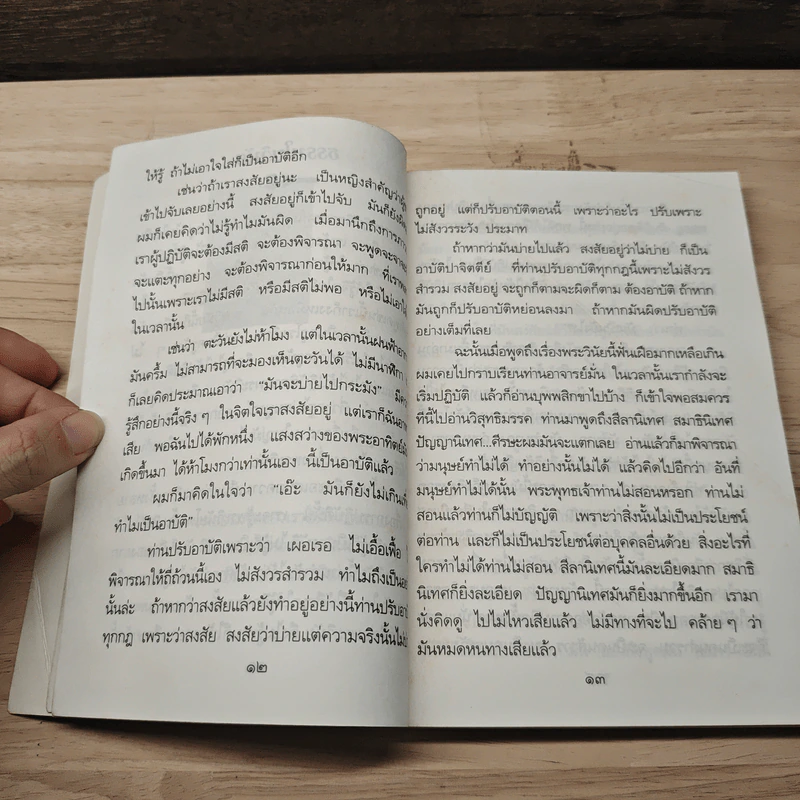 ให้รู้ ถ้าไม่เอาใจใส่ก็เป็นอาบัติอีก
เช่นว่าถ้าเราสงสัยอยู่นะ เป็นหญิงสำคัญว่า
เข้าไปจับเลยอย่างนี้ สงสัยอยู่ก็เข้าไปจับ มันก็ยัง
ผมก็เคยคิดว่าไม่รู้ทำไมมันผิด เมื่อมานึกถึงการ
เราผู้ปฏิบัติจะต้องมีสติ จะต้องพิจารณา จะพูดจะจา
จะแตะทุกอย่าง จะต้องพิจารณาก่อนให้มาก
ไปนั้นเพราะเราไม่มีสติ หรือมีสติไม่พอ หรือไม่เอา
ในเวลานั้น
เช่นว่า ตะวันยังไม่ห้าโมง แต่ในเวลานั้นฝนฟ้า
มันครึ้ม ไม่สามารถที่จะมองเห็นตะวันได้ ไม่มีนาฬิกา
ก็เลยคิดประมาณเอาว่า “มันจะบ่ายไปกระมัง”
รู้สึกอย่างนี้จริงๆ ในจิตใจเราสงสัยอยู่ แต่เราก็ฉัน
เสีย พอฉันไปได้พักหนึ่ง แสงสว่างของพระอาทิตย์
เกิดขึ้นมา ได้ห้าโมงกว่าเท่านั้นเอง นี้เป็นอาบัติแล้ว
ผมก็มาคิดในใจว่า “เอ๊ะ มันก็ยังไม่เกิน
ทำไมเป็นอาบัติ”
ท่านปรับอาบัติเพราะว่า เผอเรอ ไม่เอื้อเฟื้อ
พิจารณาให้ถี่ถ้วนนี้เอง ไม่สังวรสำรวม ทำไมถึงเป็น
นั้นล่ะ ถ้าหากว่าสงสัยแล้วยังทำอยู่อย่างนี้ท่านปรับ
ทุกกฎ เพราะว่าสงสัย สงสัยว่าบ่ายแต่ความจริงนั้น
๑๒
ถูกอยู่ แต่ก็ปรับอาบัติตอนนี้ เพราะว่าอะไร ปรับเพราะ
ไม่สังวรระวัง ประมาท
ถ้าหากว่ามันบ่ายไปแล้ว สงสัยอยู่ว่าไม่บ่าย ก็เป็น
อาบัติปาจิตตีย์ ที่ท่านปรับอาบัติทุกกฎนี้เพราะไม่สังวร
สำรวม สงสัยอยู่ จะถูกก็ตามจะผิดก็ตาม ต้องอาบัติ ถ้าหาก
มันถูกก็ปรับอาบัติหย่อนลงมา ถ้าหากมันผิดปรับอาบัติ
อย่างเต็มที่เลย
ฉะนั้นเมื่อพูดถึงเรื่องพระวินัยนี้ฟั่นเฝือมากเหลือเกิน
ผมเคยไปกราบเรียนท่านอาจารย์มั่น ในเวลานั้นเรากำลังจะ
เริ่มปฏิบัติ แล้วก็อ่านบุพพสิกขาไปบ้าง ก็เข้าใจพอสมควร
ทีนี้ไปอ่านวิสุทธิมรรค ท่านมาพูดถึงสีลานิเทศ สมาธินิเทศ
ปัญญานิเทศ...ศีรษะผมมันจะแตกเลย อ่านแล้วก็มาพิจารณา
ว่ามนุษย์ทำไม่ได้ ทำอย่างนั้นไม่ได้ แล้วคิดไปอีกว่า อันที่
มนุษย์ทำไม่ได้นั้น พระพุทธเจ้าท่านไม่สอนหรอก ท่านไม่
สอนแล้วท่านก็ไม่บัญญัติ เพราะว่าสิ่งนั้นไม่เป็นประโยชน์
ต่อท่าน และก็ไม่เป็นประโยชน์ต่อบุคคลอื่นด้วย สิ่งอะไรที่
ใครทำไม่ได้ท่านไม่สอน สีลานิเทศนี้มันละเอียดมาก สมาธิ
นิเทศก็ยิ่งละเอียด ปัญญานิเทศมันก็ยิ่งมากขึ้นอีก เรามา
นั่งคิดดู ไปไม่ไหวเสียแล้ว ไม่มีทางที่จะไป คล้ายๆ ว่า
มันหมดหนทางเสียแล้ว
๑๓